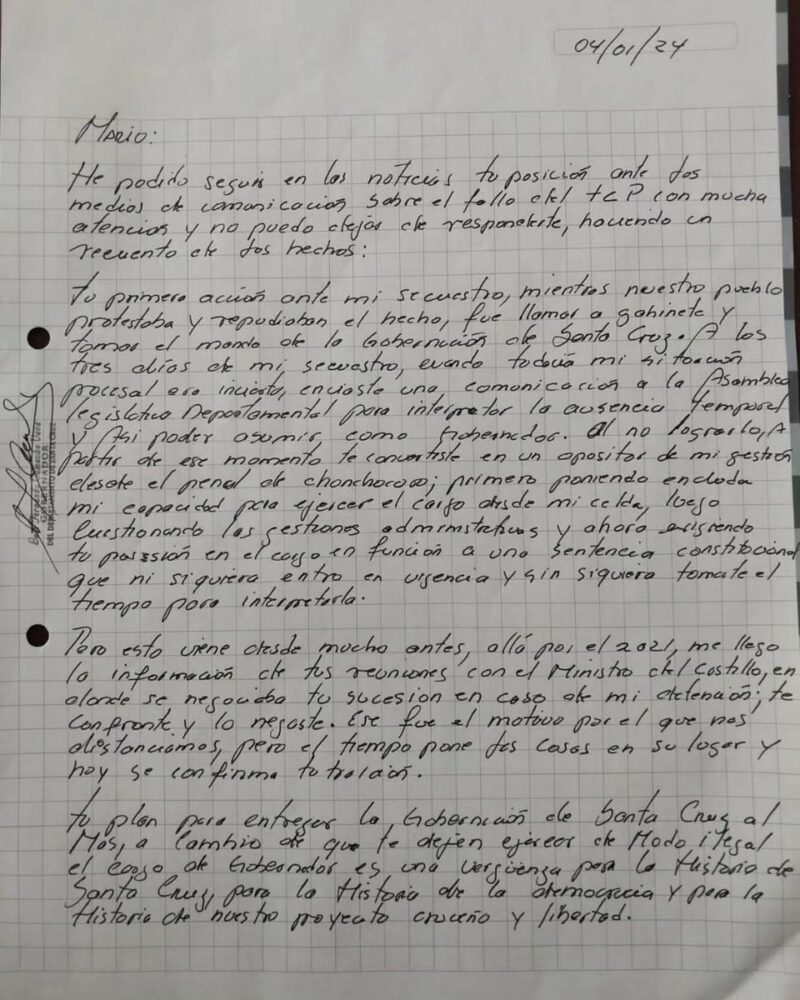 04/01/24
Mario:
He podido seguir en las noticias tu posición ante los
medios de comunicación sobre el fallo del TCP con mucha
atención y no puedo dejar de responderte, haciendo un
recuento de los hechos:
Tu primera acción ante mi secuestro, mientras nuestro pueblo
protestaba y repudiaban el hecho, fue llamar a gabinete y
tomar el mando de la Gobernación de Santa Cruz. A los
tres días de mi secuestro, cuando todavía mi situación
procesal era incierta, enviaste una comunicación a la Asamblea
legislativa Departamental para interpretar la ausencia temporal
y Así poder asumir como Gobernador. Al no lograrlo, A
partir de ese momento te convertiste en un opositor de mi gestión
desde el penal de chonchocoro; primero poniendo en duda
mi capacidad para ejercer el cargo desde mi celda, luego
Cuestionando las gestiones administrativas y ahora exigiendo
tu posesión en el cargo en función a una sentencia constitucional
que ni siquiera entro en vigencia y sin siquiera tomate el
tiempo para interpretarla.
Pero esto viene desde mucho antes, allá por el 2021, me llego
la información de tus reuniones con el Ministro del Castillo, en
donde se negociaba tu sucesion en caso de mi detención; te
confronte y lo negaste. Ese fue el motivo por el que nos
distanciamos, pero el tiempo pone las cosas en su lugar y
hoy se confirma tu traición.
Tu plan para entregar la Gobernación de Santa Cruz al
Mas, a cambio de que te dejen ejercer de Modo ilegal
el cargo de Gobernador es una vergüenza para la Historia de
Santa Cruz, para la Historia de la democracia y para la
Historia de nuestro proyecto cruceño y libertad.
GOBERNADOR